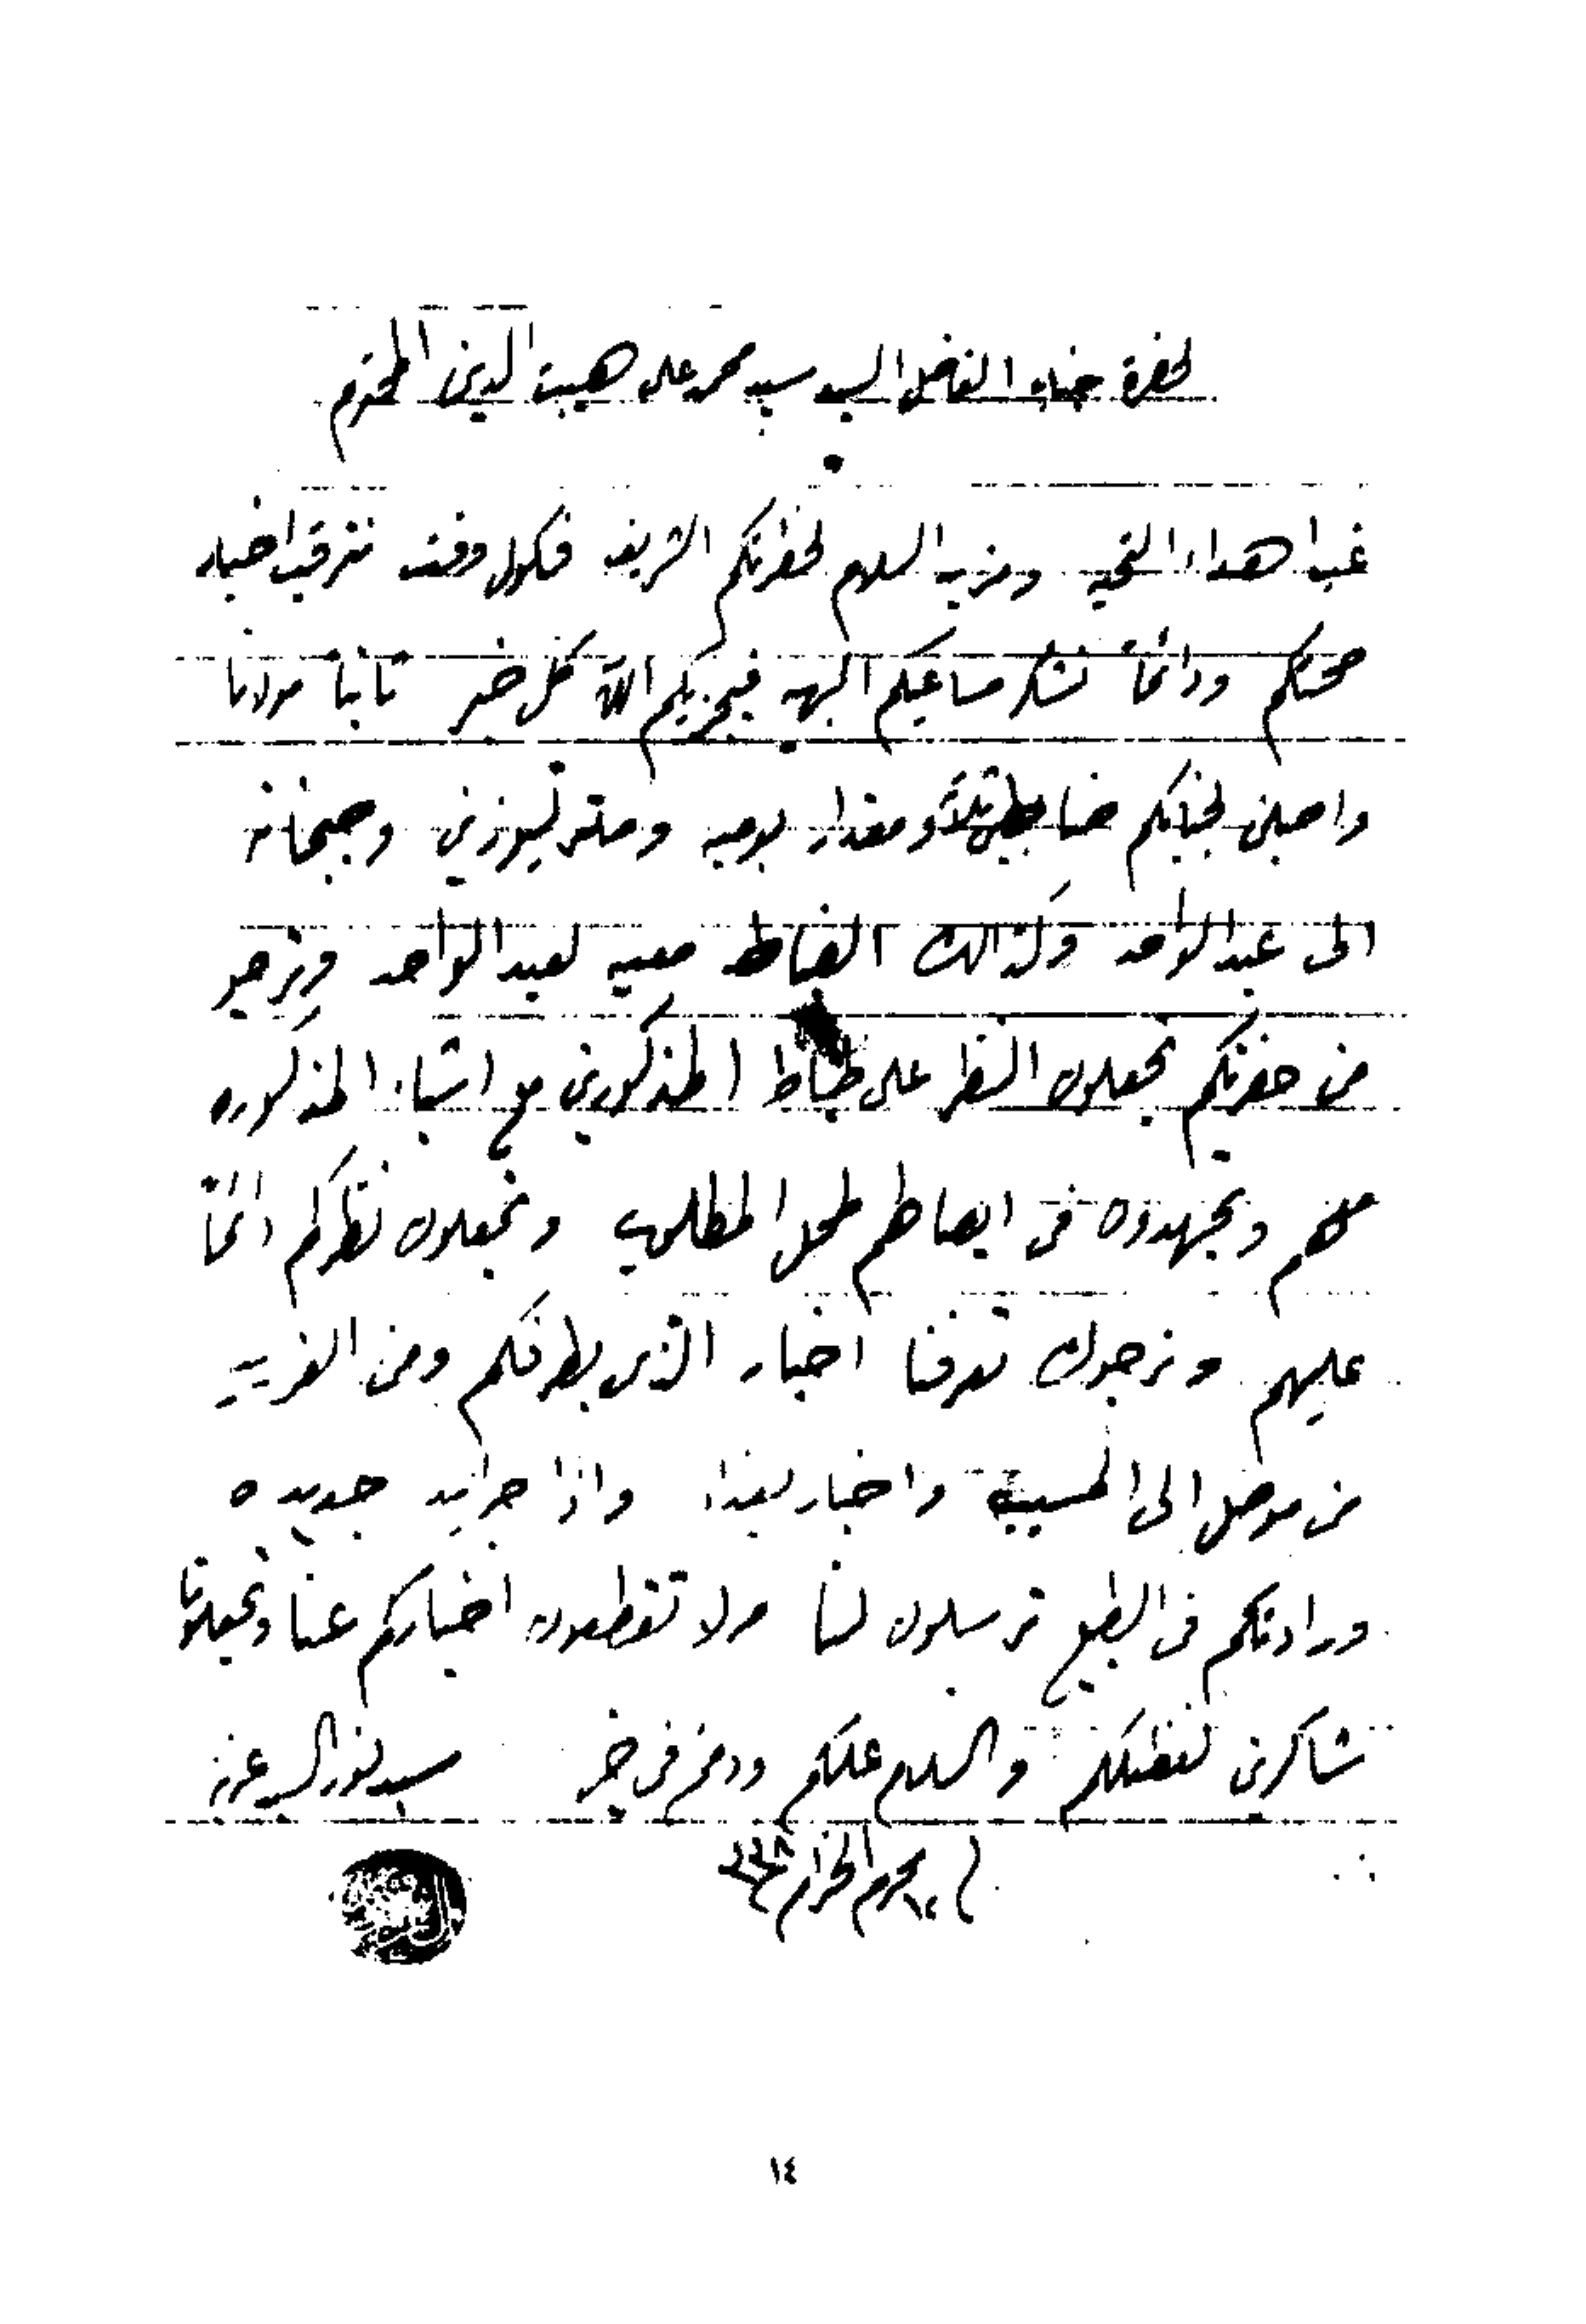 لحضرة جناب الفاضل السيد سيد محمد على هبت الدين المحترم
غب اهداء التحيه ومزيد السلام لحضراتكم الشريف فكل وقت نترقب اخبار
صحتكم ودائماً نشكر مساعيكم البهيه فيجزيكم الله كل خير ثانياً مولانا
واصلين لجنابكم ضابطين ومقدار بومبه ومتراليوزين وجبخانه
الى عبد الواحد وكذالك الضابط معيه لعبد الواحد ونرجو
من حضرتكم تجعلون النظر على ضباط المذكورين مع اشياء المذكوره
معهم وتجهدون في ايصالهم لمحل المطلوب وتجعلون نظركم دائماً
عليهم ونرجوك تعرفنا اخبار الذى بطرفكم ومن الغربيه
من موصل الى المسيب واخبار بغداد واذا جرايد جديده
ورادتكم في الطبع ترسلون لنا ولا تقطعون اخباركم عنا وتجعلونا
شاكرين لفضلكم والسلام عليكم ودمتم في خير سيد نور السيد عزيز
محرم الحرام
١٤